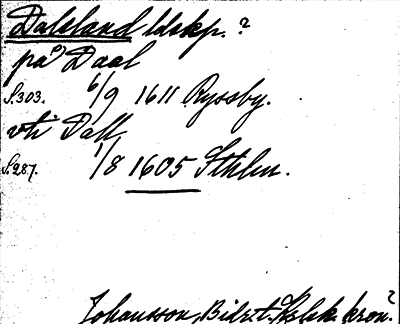 Dalsland ldskp. ?
på Daal
S. 303. 6/9 1611 Ryssby.
vti Dall
S. 287. 1/8 1605 Sthlm.
Johansson, Bidr. t. kron. ?